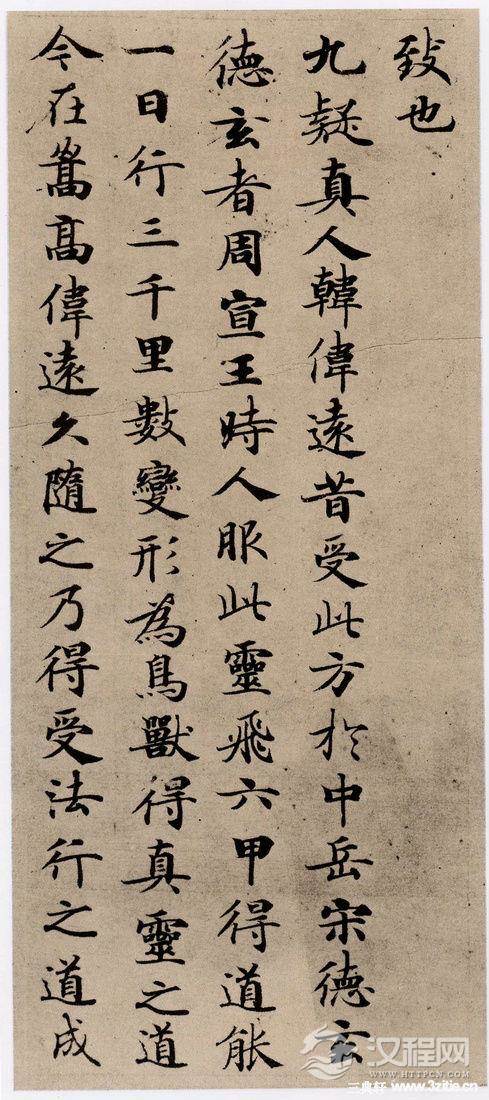 致也
九疑真人韓偉遠昔受此方於中岳宋德玄
德玄者周宣王時人服此靈飛六甲得道能
一日行三千里數變形為鳥獸得真靈之道
今在嵩高偉遠久隨之乃得受法行之道成
汉程网
WWW.HTTPCN.COM
三典轩 www.3zitie.cn